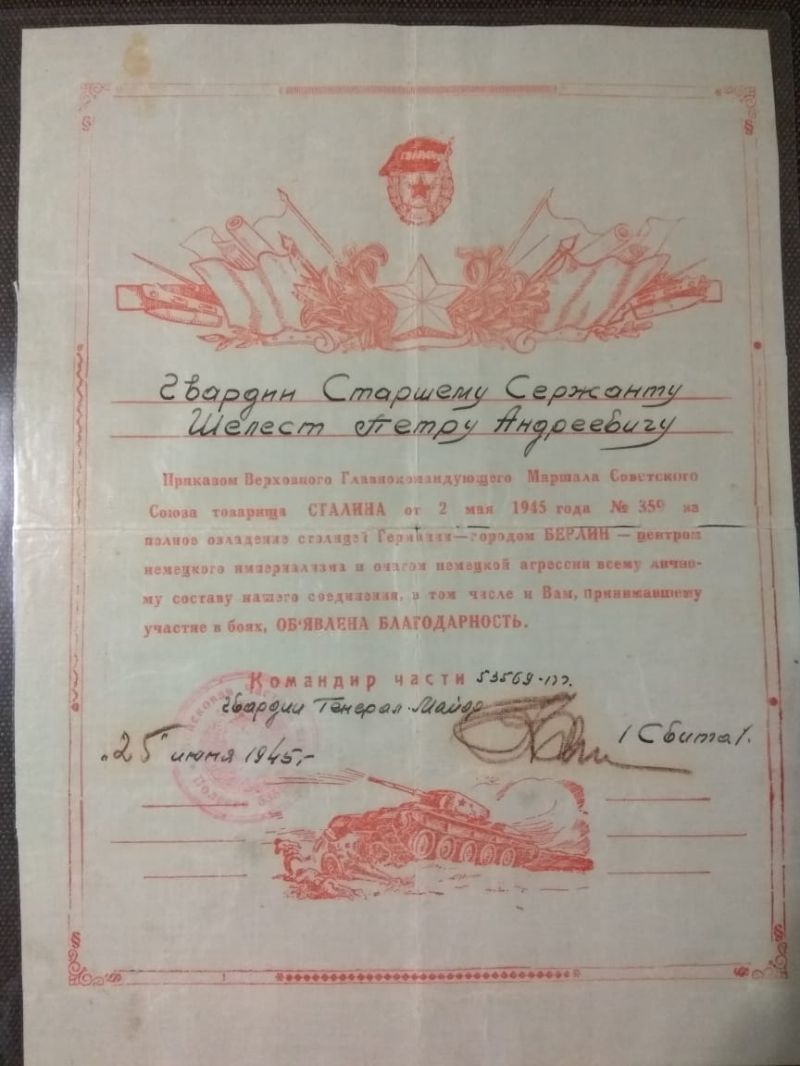 Гвардии Старшему Сержанту
Шелест Петру Андреевичу
Приказом Верховного Главнокомандующего Маршала Советского
Союза товарища СТАЛИНА от 2 мая 1945 года № 359 за
полное овладение столицей Германии—городом БЕРЛИН — центром
немецкого империализма и очагом немецкой агрессии всему лично-
му составу нашего соединения, в том числе и Вам, принимавшему
участие в боях, ОБ'ЯВЛЕНА БЛАГОДАРНОСТЬ.
Командир части 53569-пп.
гвардии Генерал-Майор
/Сбита/.
„25" июня 1945,-